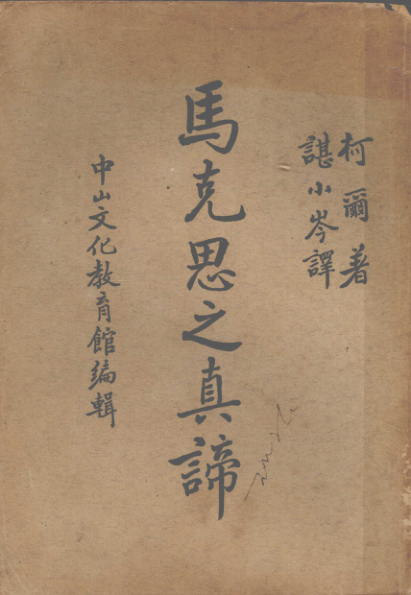 柯爾著
諶小岑譯
馬克思之真諦
中山文化教育館編輯